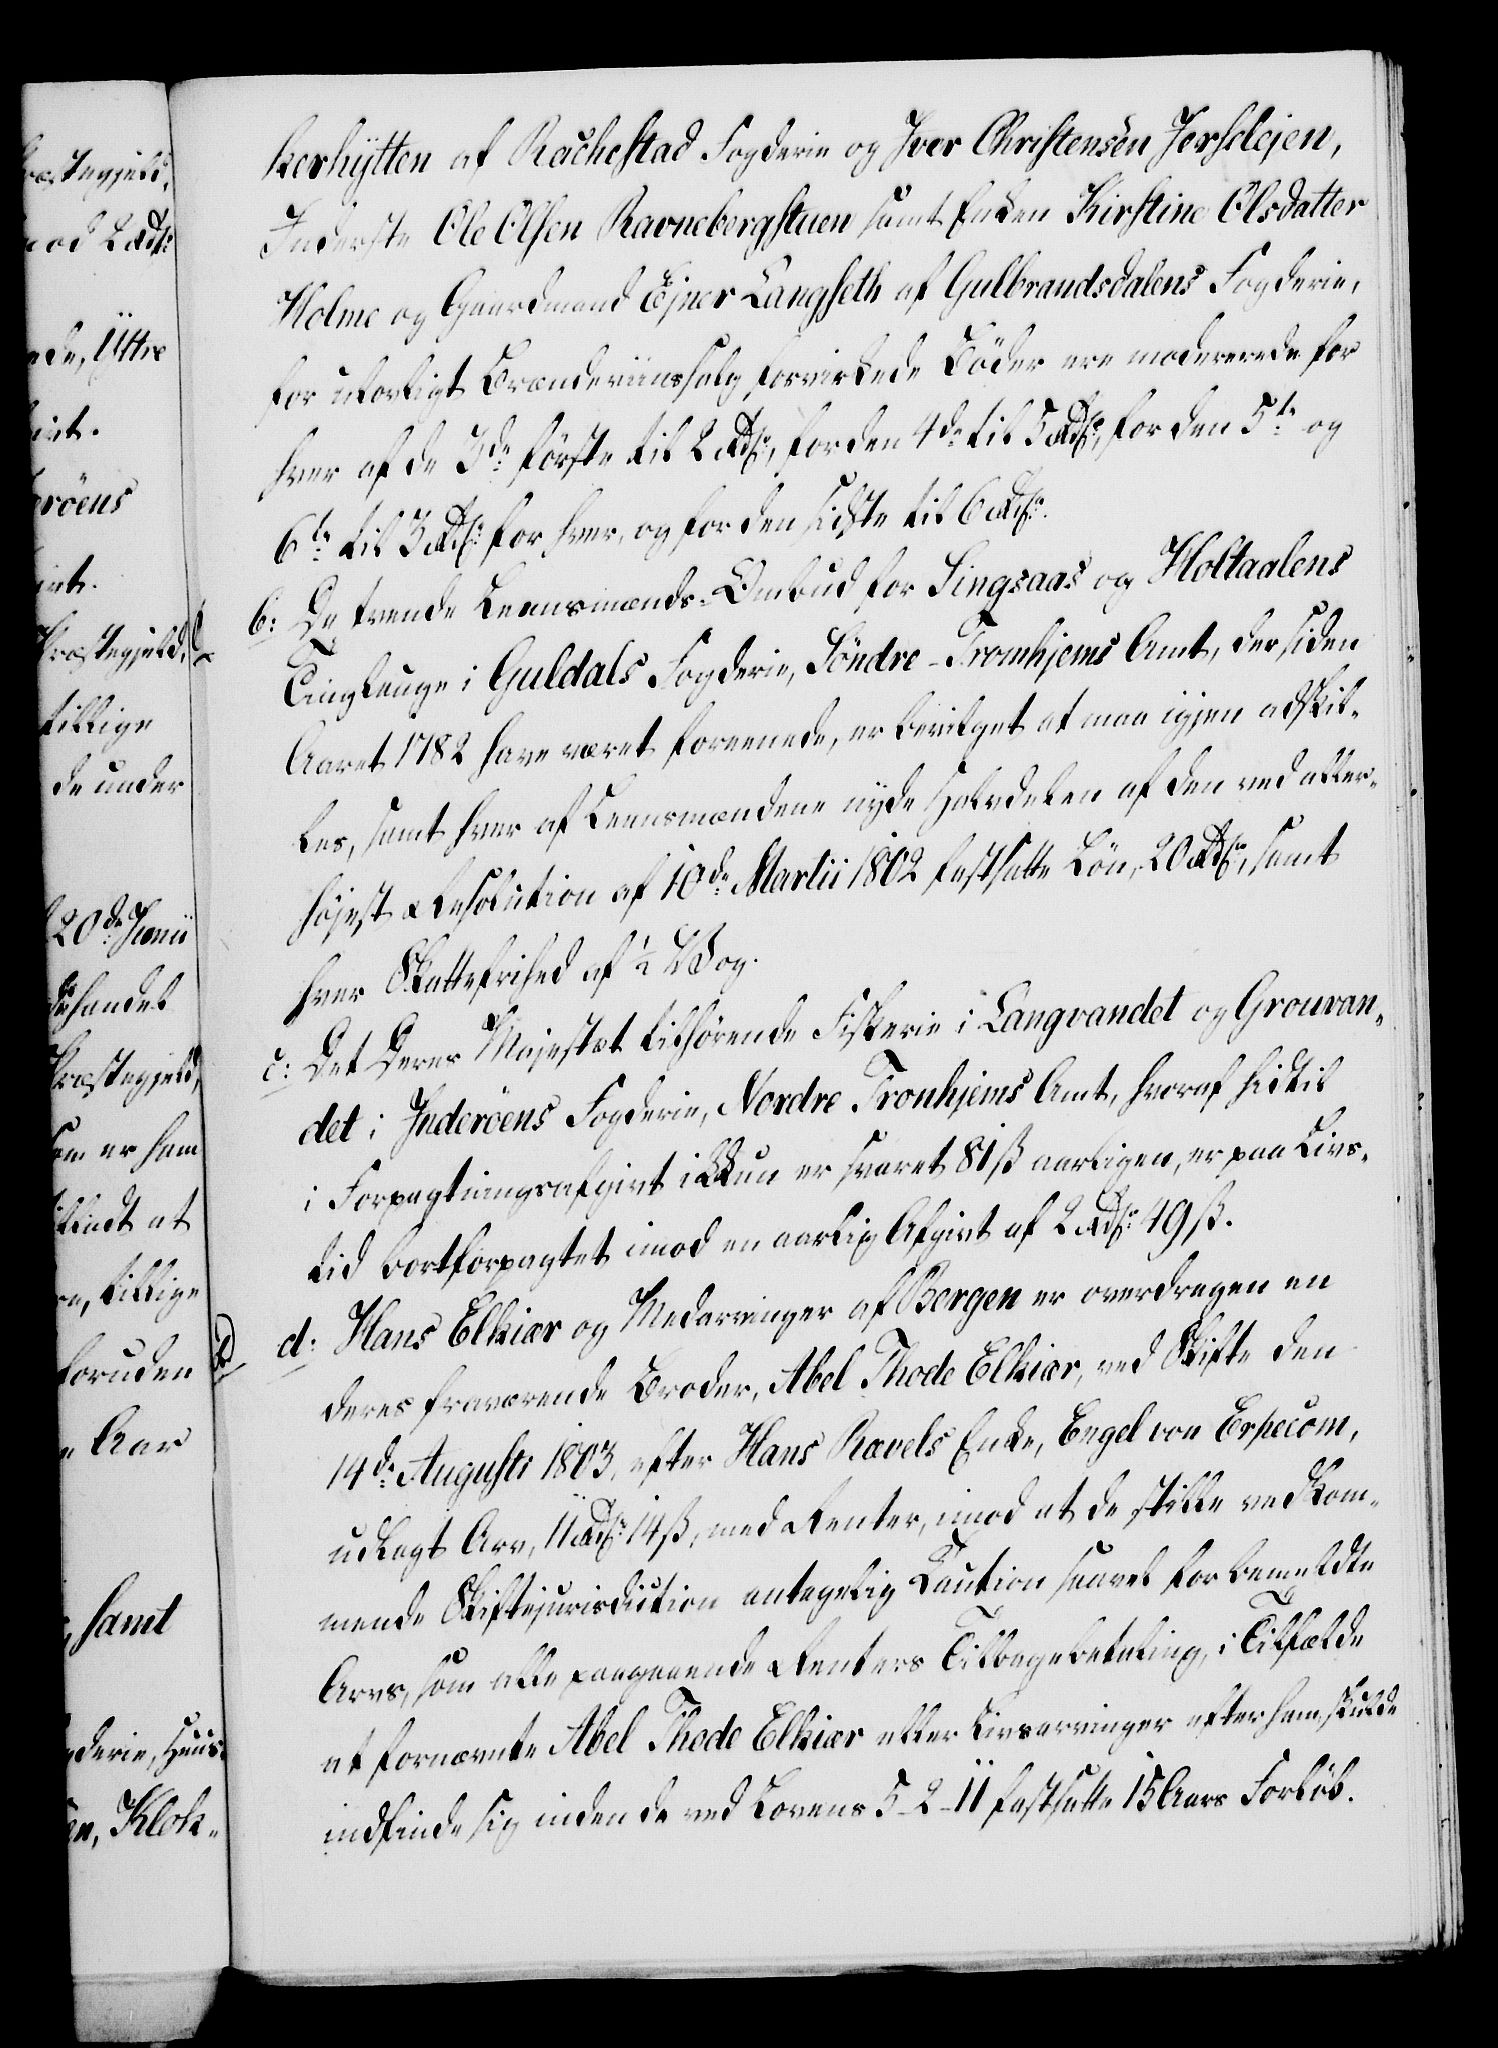 kerhÿtten af Rachestad Fogderie og Iver Christensen Jerslejen,
Inderste Ole Olsen Ravnebergstuen samt Enken Kirstine Olsdatter
Holme og Gaardmand Ejner Langseth af Gulbrandsdalens Fogderie,
for ulovligt Brændeviinssalg forvirkede Bøder ere modererede for
hver af de 3de første til 2 Rdlr, for den 4de til 5 Rdlr, for den 5te og
6te til 3 Rdlr for hver, og for den sidste til 6 Rdlr.
b: De tvende Leensmands-Ombud for Singsaas og Holtaalens
Tinglauge i Guldals Fogderie, Söndre-Tromhjems Amt, der siden
Aaret 1782 have været foreenede, er bevilget at maa igjen adskil-
les, samt hver af Leensmændene nyde Halvdelen af den ved aller-
højest Resolution af 10de Martii 1802 fastsatte Løn, 20 Rdlr, samt
hver Skattefrihed af ½ Vog.
c: Det Deres Majestæt tilhørende Fiskerie i Langvandet og Grouvan-
det i Inderöens Fogderie, Nordre Tronhjems Amt, hvoraf hidtil
i Forpagtningsafgivt ikkun er svaret 81 ß aarligen, er paa Livs-
tid bortforpagtet imod en aarlig Afgivt af 2 Rdlr 49 ß.
d: Hans Elkiær og Medarvinger af Bergen er overdragen en
deres fraværende Broder, Abel Thode Elkiær, ved Skifte den
14de Augusti 1803, efter Hans Rævels Enke, Engel von Erpecom,
udlagt Arv, 11 Rdlr 14 ß, med Renter, imod at de stille vedkom-
mende Skiftejurisdiction antagelig Caution saavel for bemeldte
Arvs, som alle paagaaende Renters Tilbagebetaling, i Tilfælde
at fornævnte Abel Thode Elkiær eller Livsarvinger efter ham, skulde
indfinde sig inden de ved Lovens 5-2-11 fastsatte 15 Aars Forløb.